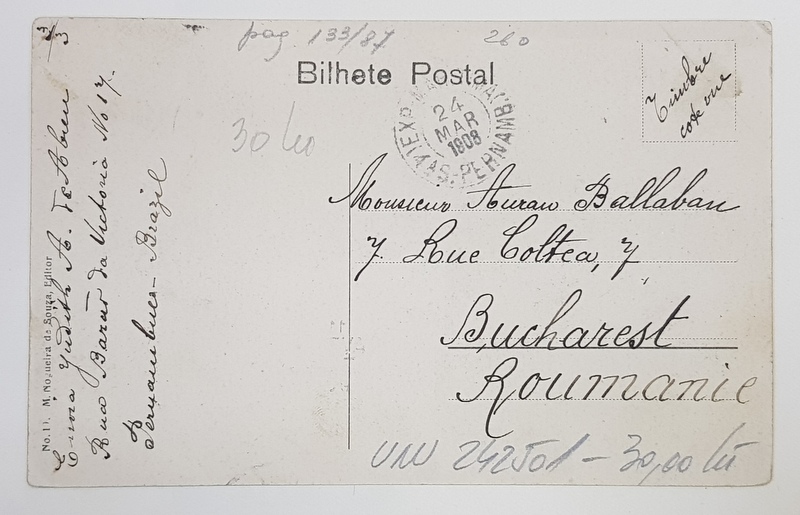 3/3
pag. 133/87
260
Bilhete Postal
Timbre
cote vue
24
MAR
1908
30 lei
Monsieur Auran Ballaban
7. Rue Coltea, 7
Bucharest
Roumanie
242501 - 30,00 lei
No. 11. M. Nogueira de Souza, Editor
Envia Judith A. de Abreu
Rua Barão da Victoria No 17.
Pernambuco - Brazil